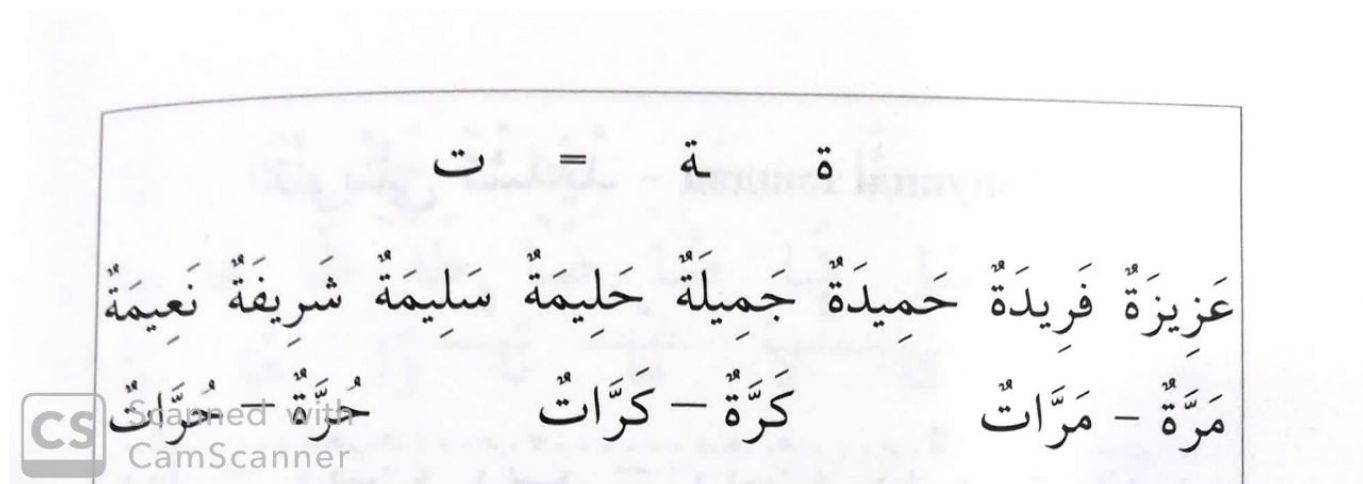 ة ـة = ت
عَزِيزَةٌ فَرِيدَةٌ حَمِيدَةٌ جَمِيلَةٌ حَلِيمَةٌ سَلِيمَةٌ شَرِيفَةٌ نَعِيمَةٌ
مَرَّةٌ – مَرَّاتٌ كَرَّةٌ – كَرَّاتٌ حُرَّةٌ – حُرَّاتٌ
CS Scanned with
CamScanner